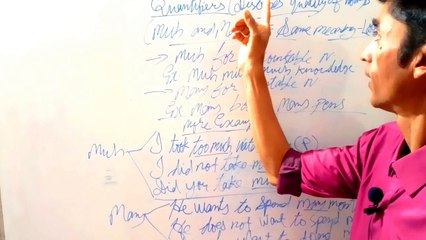 Quantifiers (discu es quantity of noun
(Much and M Same meaning
→ Much for countable N
Ex Much much knowledge
→ Many for table N
Ex Many bo Many pens
more Exam
Much
I took too much wat (P)
I did not take m
Did you take m
Many
He wants to spend many mon
He does not want to spend m
want to